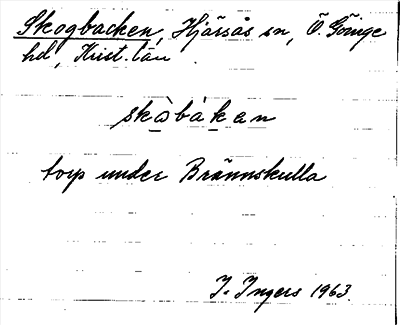 Skogbacken, Hjärsås sn, Ö. Göinge
hd, Krist. län
skòbákan
torp under Brännskulla
I. Ingers 1963.